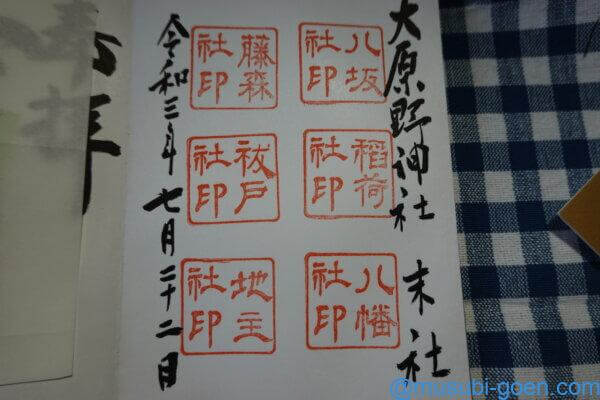 大原野神社 末社
八坂
社印
稲荷
社印
八幡
社印
藤森
社印
祓戸
社印
地主
社印
令和三年 七月二十二日
拝
@musubi-goen.com